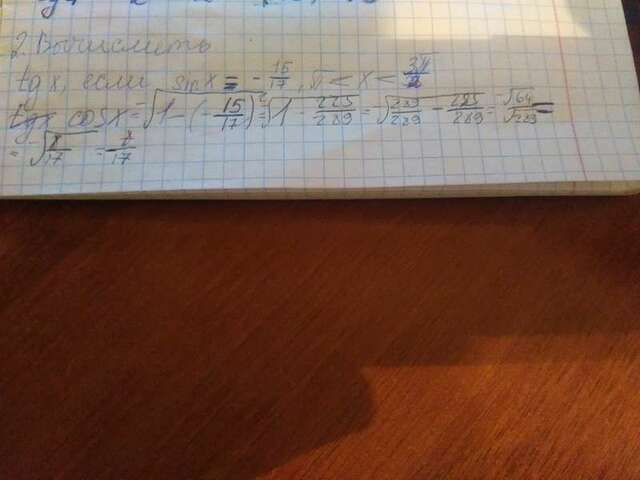 2. Вычислить
tg x, если sin x = - 15/17, π < x < 3π/2
cos x = -√1-(-15/17)² = √1 - 225/289 = √289/289 - 225/289 = -√64/289 =
= √8/17 = 8/17